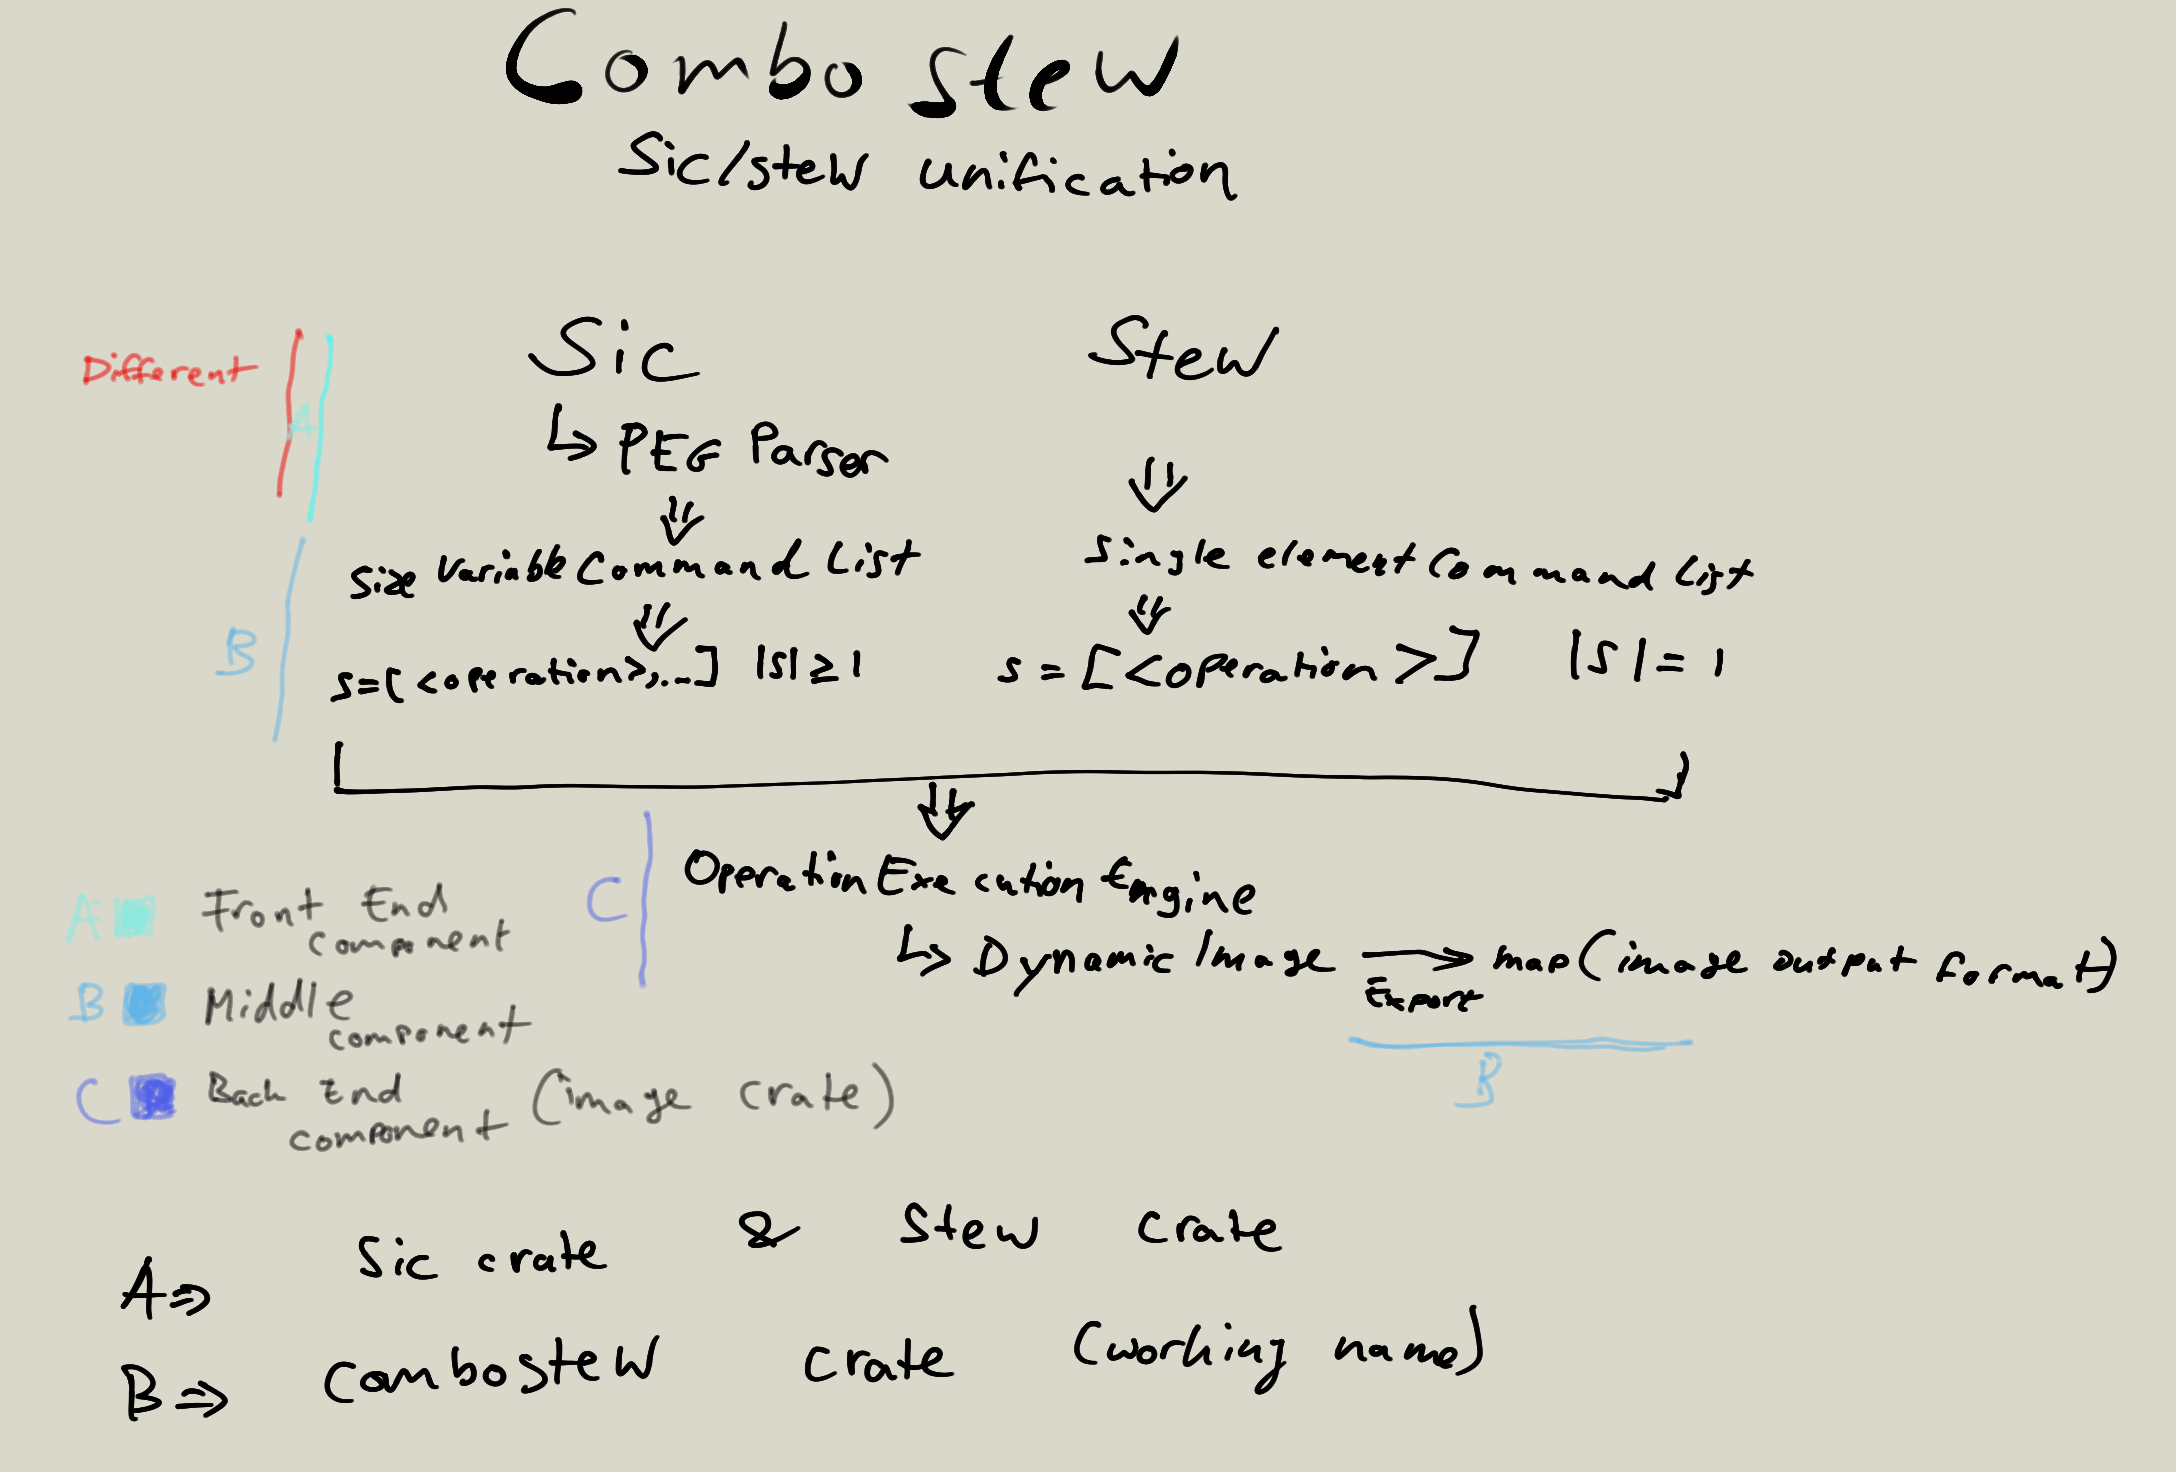 Combo Stew
Sic/stew unification
Different
Sic
Stew
A
↳ PEG Parser
⇓
⇓
Size Variable Command List
Single element Command List
⇓
⇓
B
s=[<operation>,...] |s|≥1
s = [<operation>] |s| = 1
⇓
C
Operation Execution Engine
↳ Dynamic Image → map(image output format)
Export
B
A Front End
component
B Middle
component
C Back End
component (image crate)
A⇒ Sic crate & Stew crate
B⇒ combostew crate (working name)